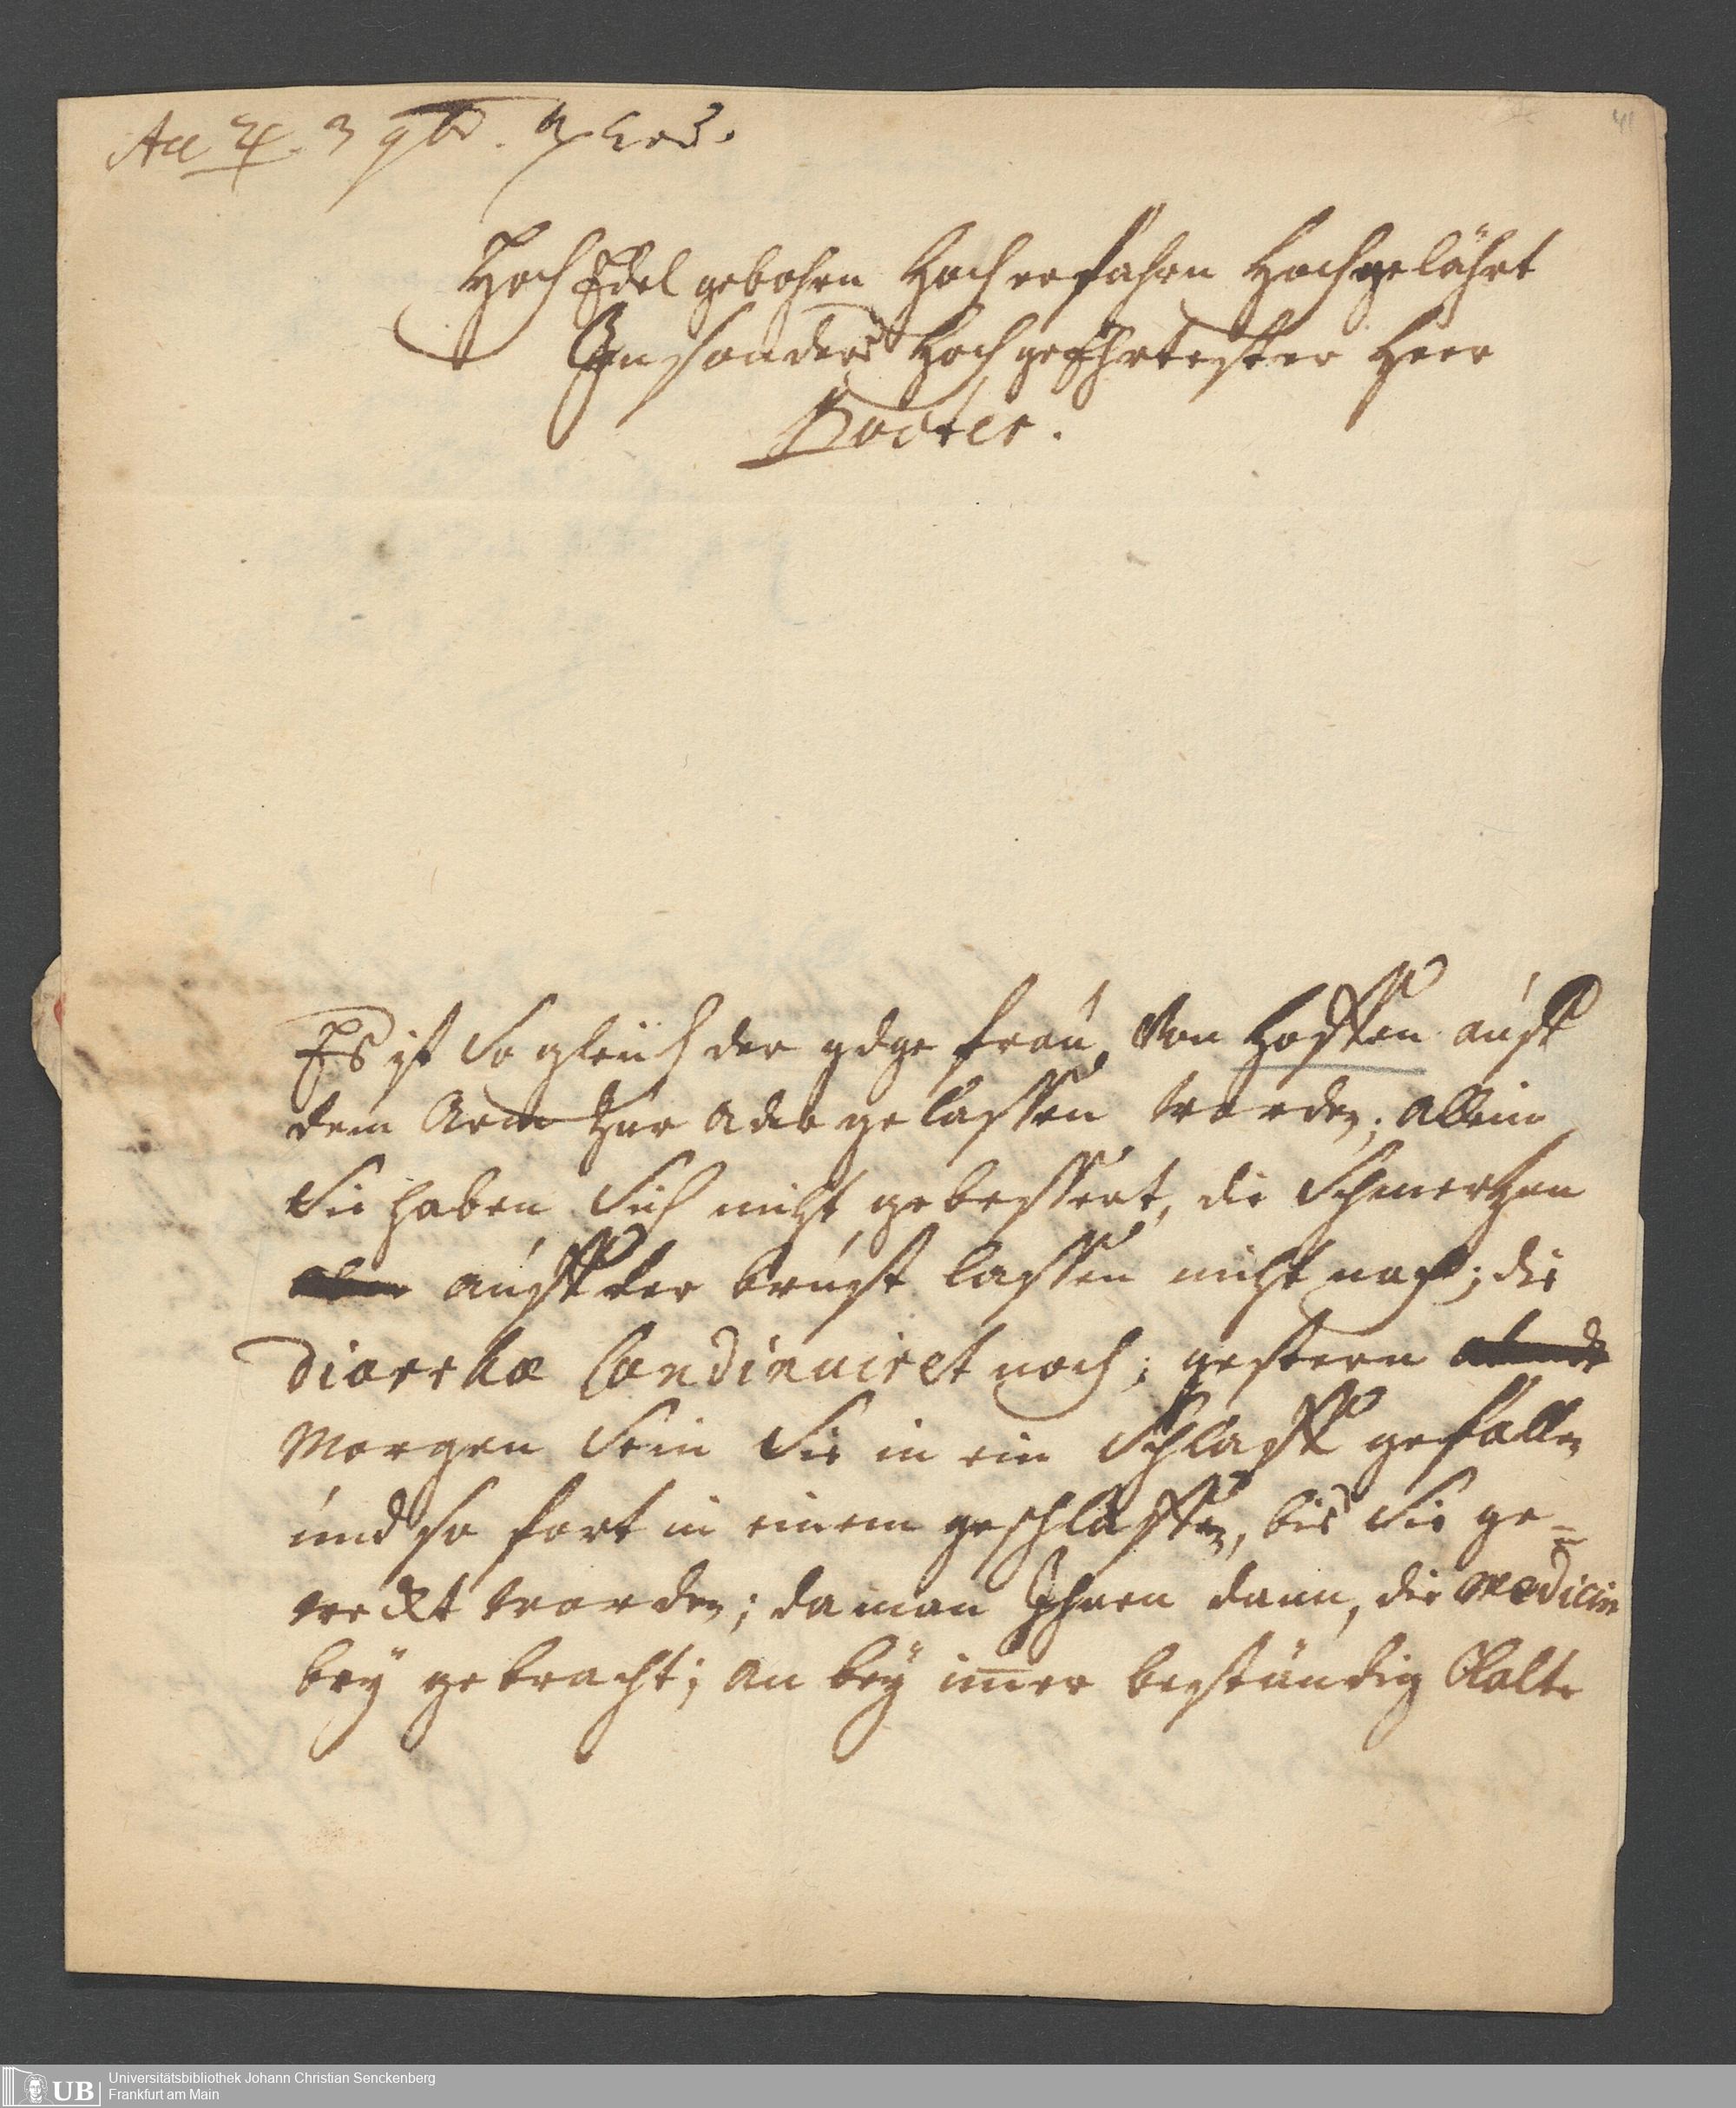 Acc ♃ 3 9br.
41
Hoch Edel gebohrn Hoch erfahrn Hochgelährt
Insonders Hoch geEhrtester Herr
Docter.
Es ist so gleich der gdge frau Von Hosten aúß
dem Arm zur ader gelassen worden; allein
Sie haben sich nicht gebessert, die Schmertzen
aúff der brúst lassen nicht nach; die
Diarrhæ Condinuiret noch; gestern
Morgen sein Sie in ein Schlaff gefallen
únd so fort in einem geschlaffen, bis Sie ge=
weckt worden; da man Ihnen dann, die Medicin
beÿ gebracht; an beÿ imer beständig Kalte
UB
Universitätsbibliothek Johann Christian Senckenberg
Frankfurt am Main